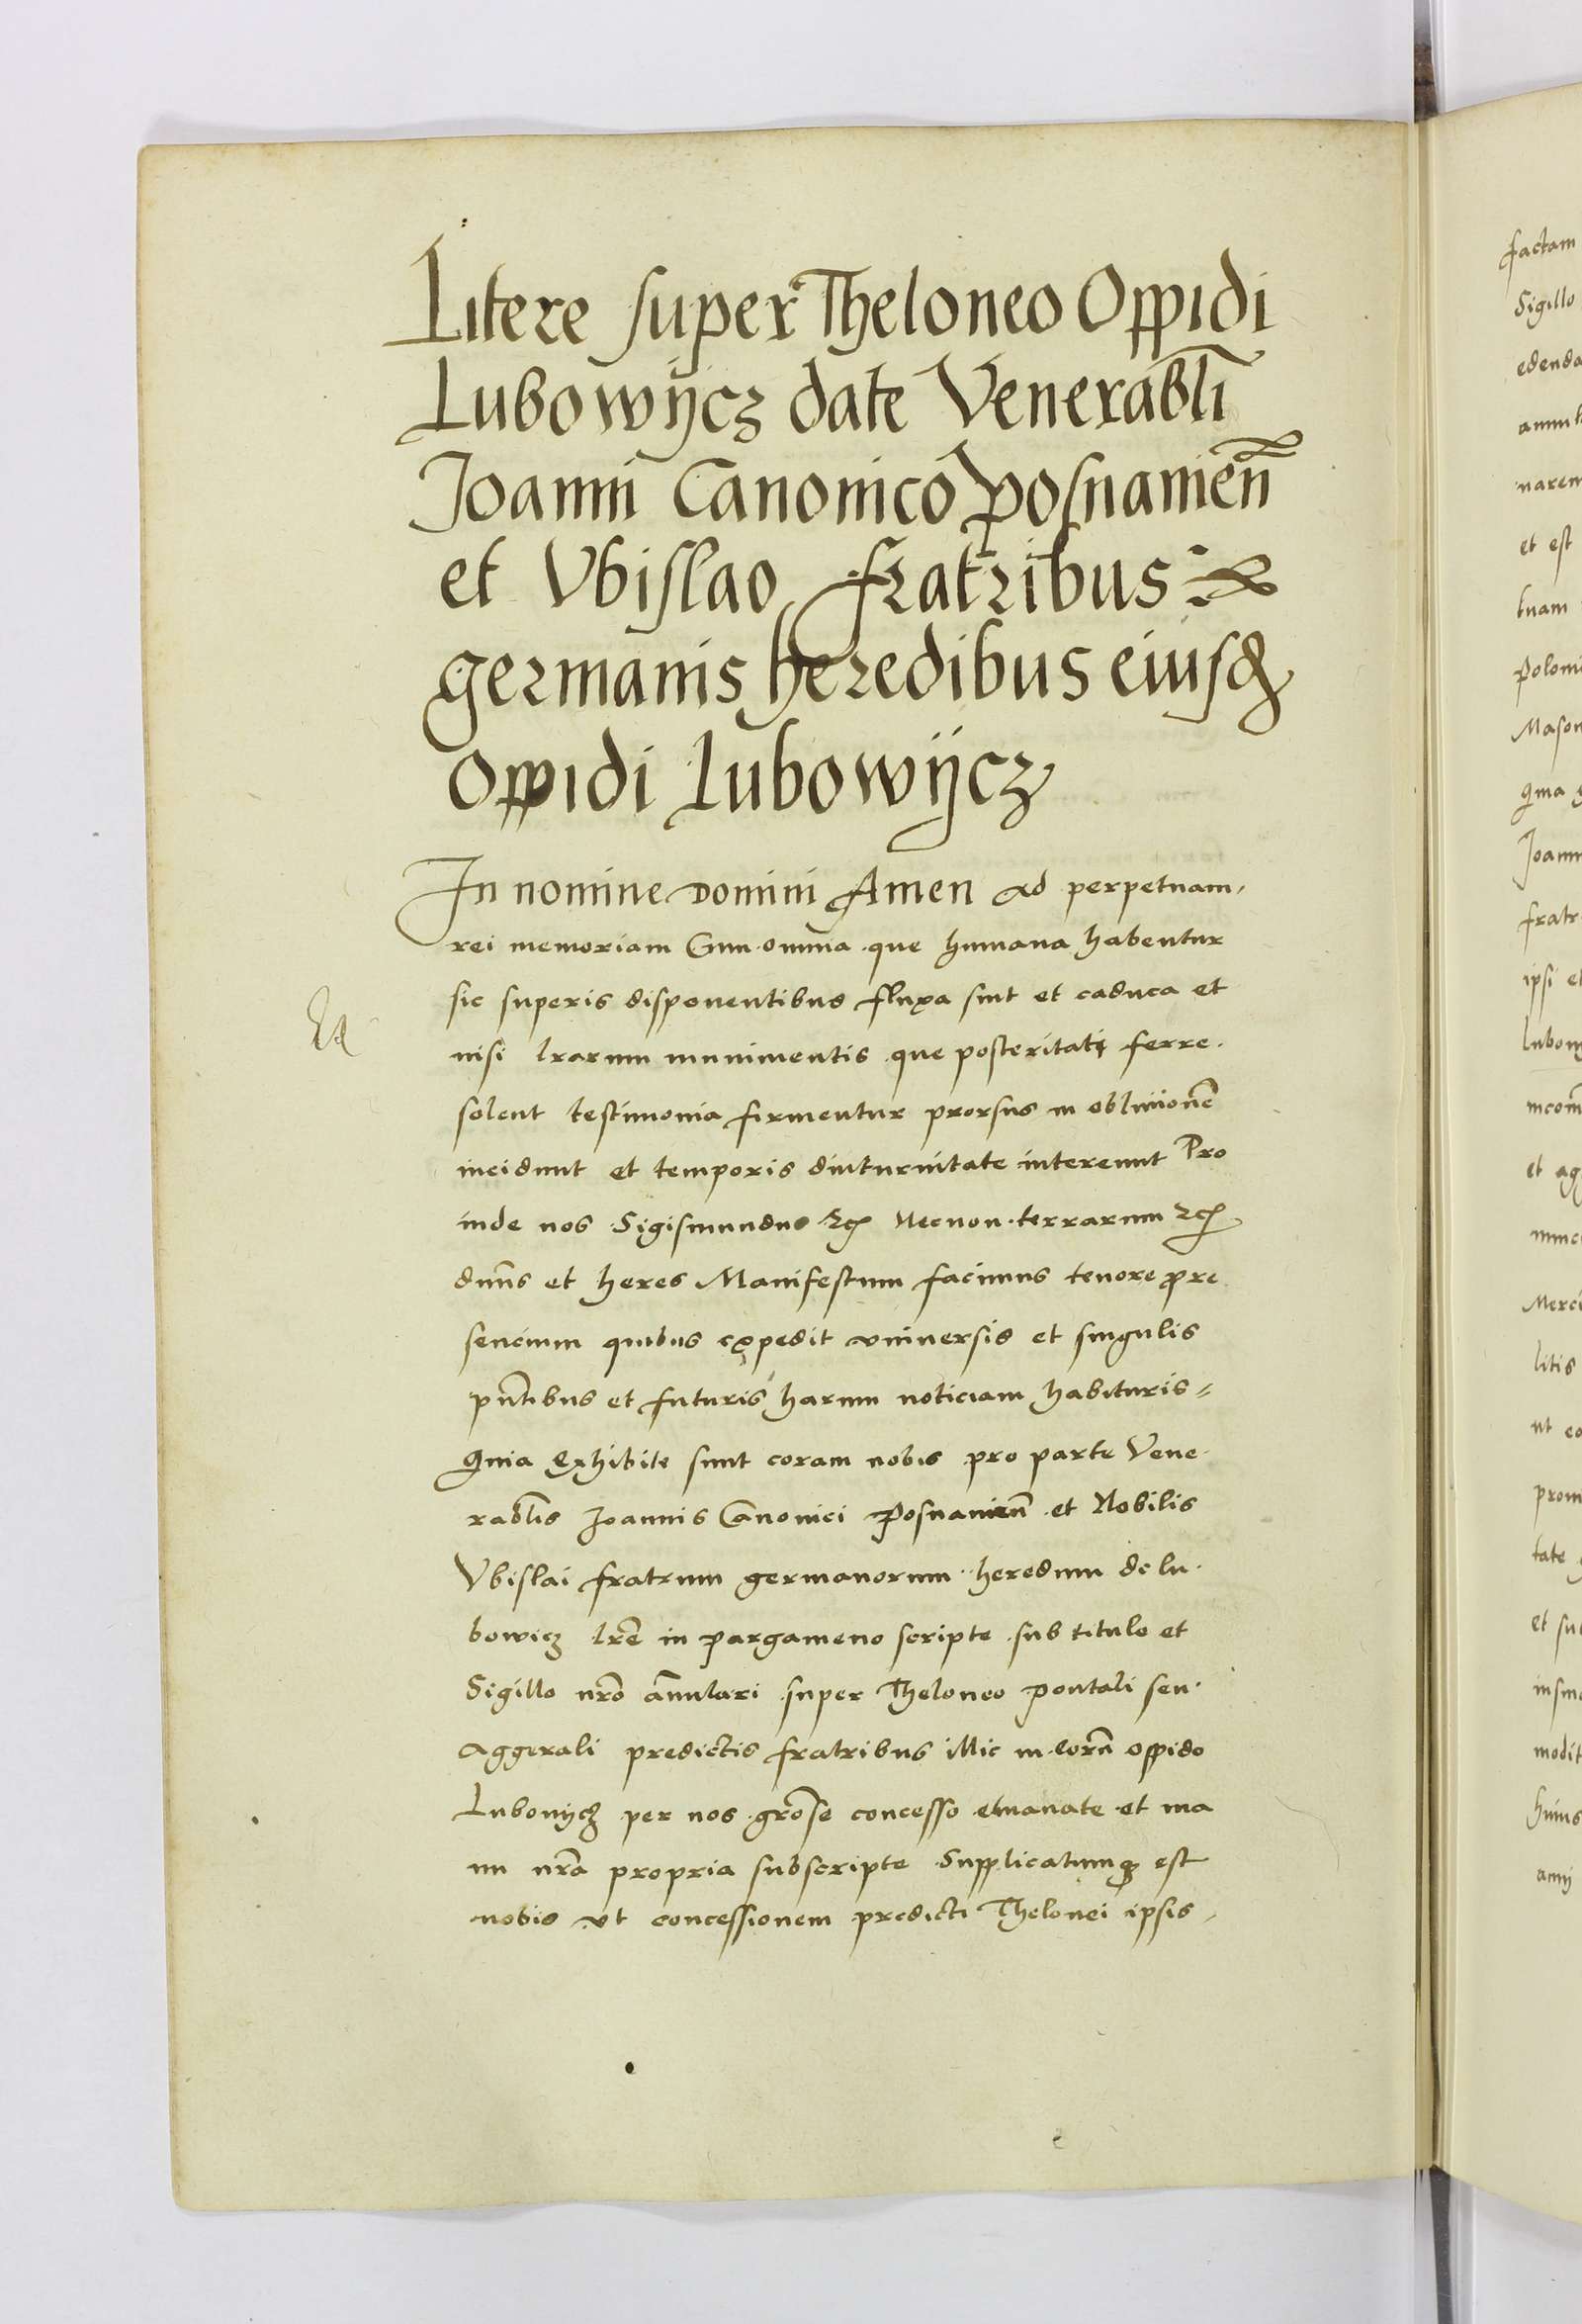 Litere super Theloneo Oppidi
Lubowijcz date Venerabli
Joanni Canonico Posnanien̄
et Vbislao fratribus
germanis heredibus eiusd
Oppidi Lubowijcz
In nomine Domini Amen Ad perpetuam
rei memoriam Cum omnia que humana habentur
sic superis disponentibus fluxa sint et caduca et
nisi lrarum munimentis que posteritati ferre
solent testimonia firmentur prorsus in obliuionē
incidunt et temporis diuturnitate intereunt Pro
inde nos Sigismundus Rex Necnon terrarum Rex
dnns et heres Manifestum facimus tenore pre
sencium quibus expedit vniuersis et singulis
pn̄tibus et futuris harum noticiam habituris
Quia Exhibite sunt coram nobis pro parte Vene
rablis Joannis Canonici Posnanien̄ et Nobilis
Vbislai fratrum germanorum heredum de lu
bowicz lr̄e in pargameno scripte sub titulo et
Sigillo nr̄o an̄ulari super Theloneo pontali seu
Aggerali predictis fratribus illic in eorū oppido
Lubowijcz per nos gr̄ose concesso emanate et ma
nu nr̄a propria subscripte Supplicatumq3 est
nobis vt concessionem predicti Thelonei ipsis
factam
Sigillo
edenda
narem
et est
tuam
Poloni
Mason
Quia
Joann
fratr
ipsi et
Lubow
incom
et ag
Merci
litis
ut eo
prom
tate
et sub
modit
huius